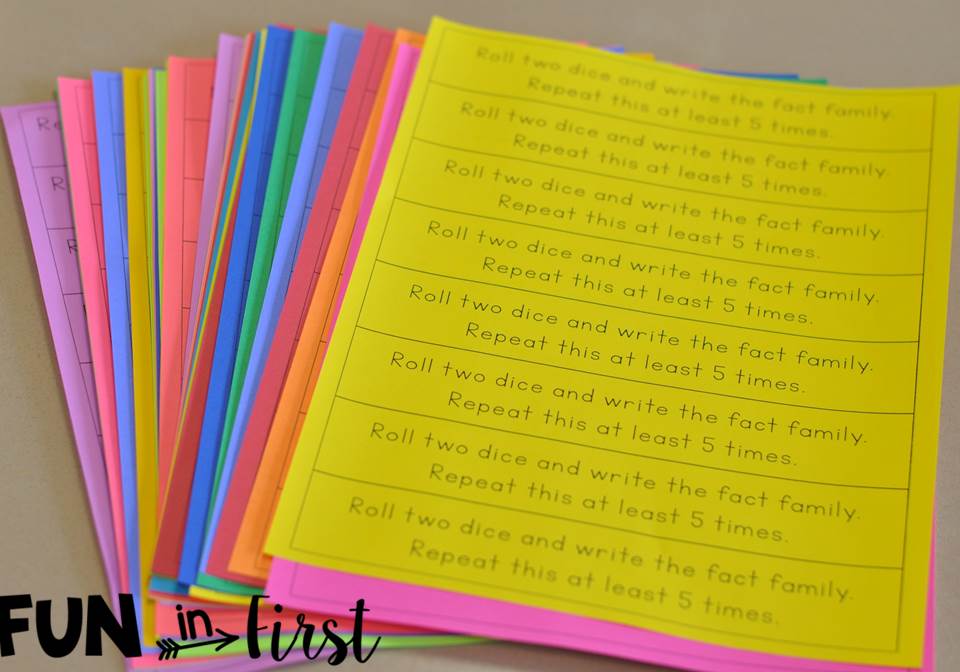 Roll two dice and write the fact family.
Repeat this at least 5 times.
Roll two dice and write the fact family.
Repeat this at least 5 times.
Roll two dice and write the fact family.
Repeat this at least 5 times.
Roll two dice and write the fact family.
Repeat this at least 5 times.
Roll two dice and write the fact family.
Repeat this at least 5 times.
Roll two dice and write the fact family.
Repeat this at least 5 times.
Roll two dice and write the fact family.
Repeat this at least 5 times.
Roll two dice and write the fact family.
Repeat this at least 5 times.
FUN in First